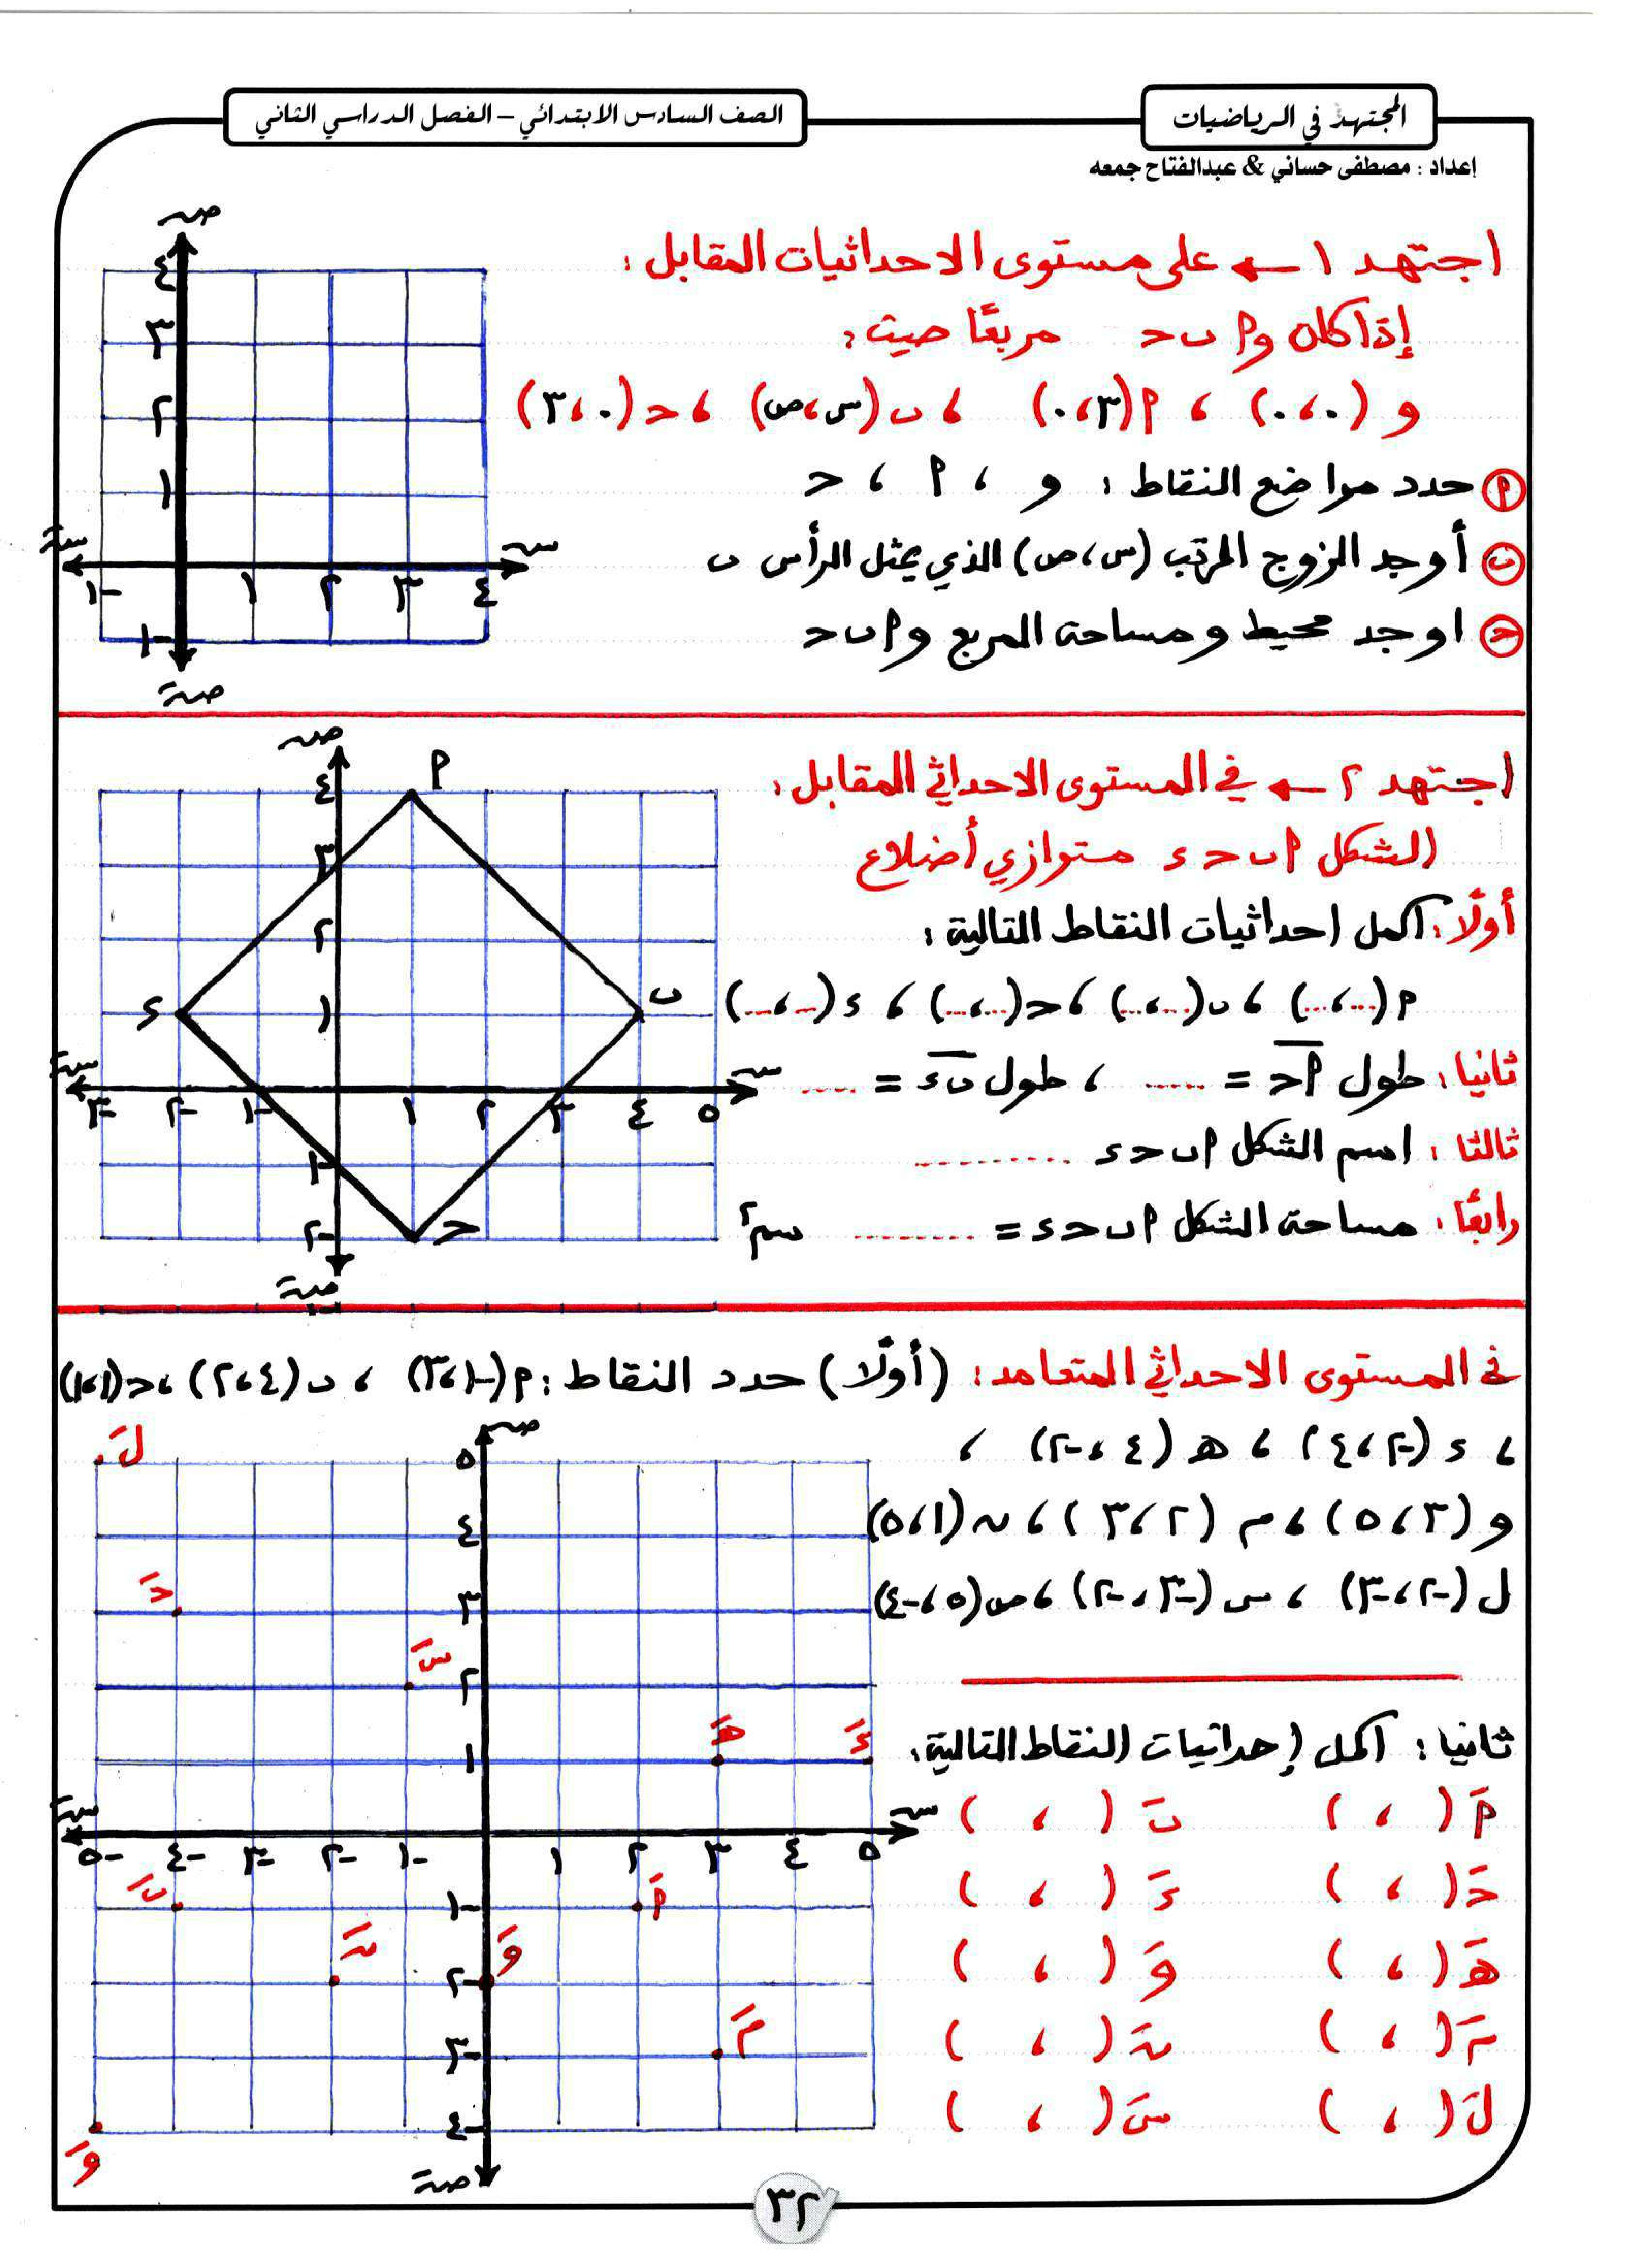 المجتهد في الرياضيات
الصف السادس الابتدائي – الفصل الدراسي الثاني
إعداد : مصطفى حساني & عبدالفتاح جمعه
اجتهد ١ ← على مستوى الاحداثيات المقابل :
إذا كان و أ ب ح مربعًا حيث :
و (٠ ، ٠) ، أ (٣ ، ٠) ، ب (س ، ص) ، ح (٠ ، ٣)
أ حدد مواضع النقاط : و ، أ ، ح
ب أوجد الزوج المرتب (س ، ص) الذي يمثل الرأس ب
ح اوجد محيط ومساحة المربع و أ ب ح
ص
٤
٣
٢
١
سَ ١- ١ ٢ ٣ ٤ س
١-
صَ
اجتهد ٢ ← في المستوى الاحداثي المقابل :
الشكل أ ب ح ء متوازي أضلاع
أولًا : اكمل احداثيات النقاط التالية :
أ (... ، ...) ، ب (... ، ...) ، ح (... ، ...) ، ء (... ، ...)
ثانيا : طول أ ح = ...... ، طول ب ء = ......
ثالثا : اسم الشكل أ ب ح ء ..........
رابعًا : مساحة الشكل أ ب ح ء = ......... سم٢
ص
أ
٤
٣
٢
ء ١ ب
سَ ٣- ٢- ١- ١ ٢ ٣ ٤ ٥ س
١-
٢- ح
صَ
٣-
في المستوى الاحداثي المتعامد : (أولًا) حدد النقاط : أ (-١ ، ٣) ، ب (٤ ، ٢) ، ح (١ ، ١)
، ء (-٢ ، ٤) ، هـ (٤ ، -٢) ،
و (٣ ، ٥) ، م (٢ ، ٣) ، ن (١ ، ٥)
ل (-٢ ، -٣) ، س (-٣ ، -٢) ، ص (٥ ، -٤)
ثانيا : اكمل إحداثيات النقاط التالية :
أَ ( ، ) بَ ( ، )
حَ ( ، ) ءَ ( ، )
هـَ ( ، ) وَ ( ، )
مَ ( ، ) نَ ( ، )
لَ ( ، ) سَ ( ، )
ص
لَ ٥
٤
حَ ٣
سَ ٢
هـَ ءَ ١
سَ ٥- ٤- ٣- ٢- ١- ١ ٢ ٣ ٤ ٥ س
بَ ١- أَ
نَ ٢- وَ
٣- مَ
٤-
وَ
صَ
٣٢